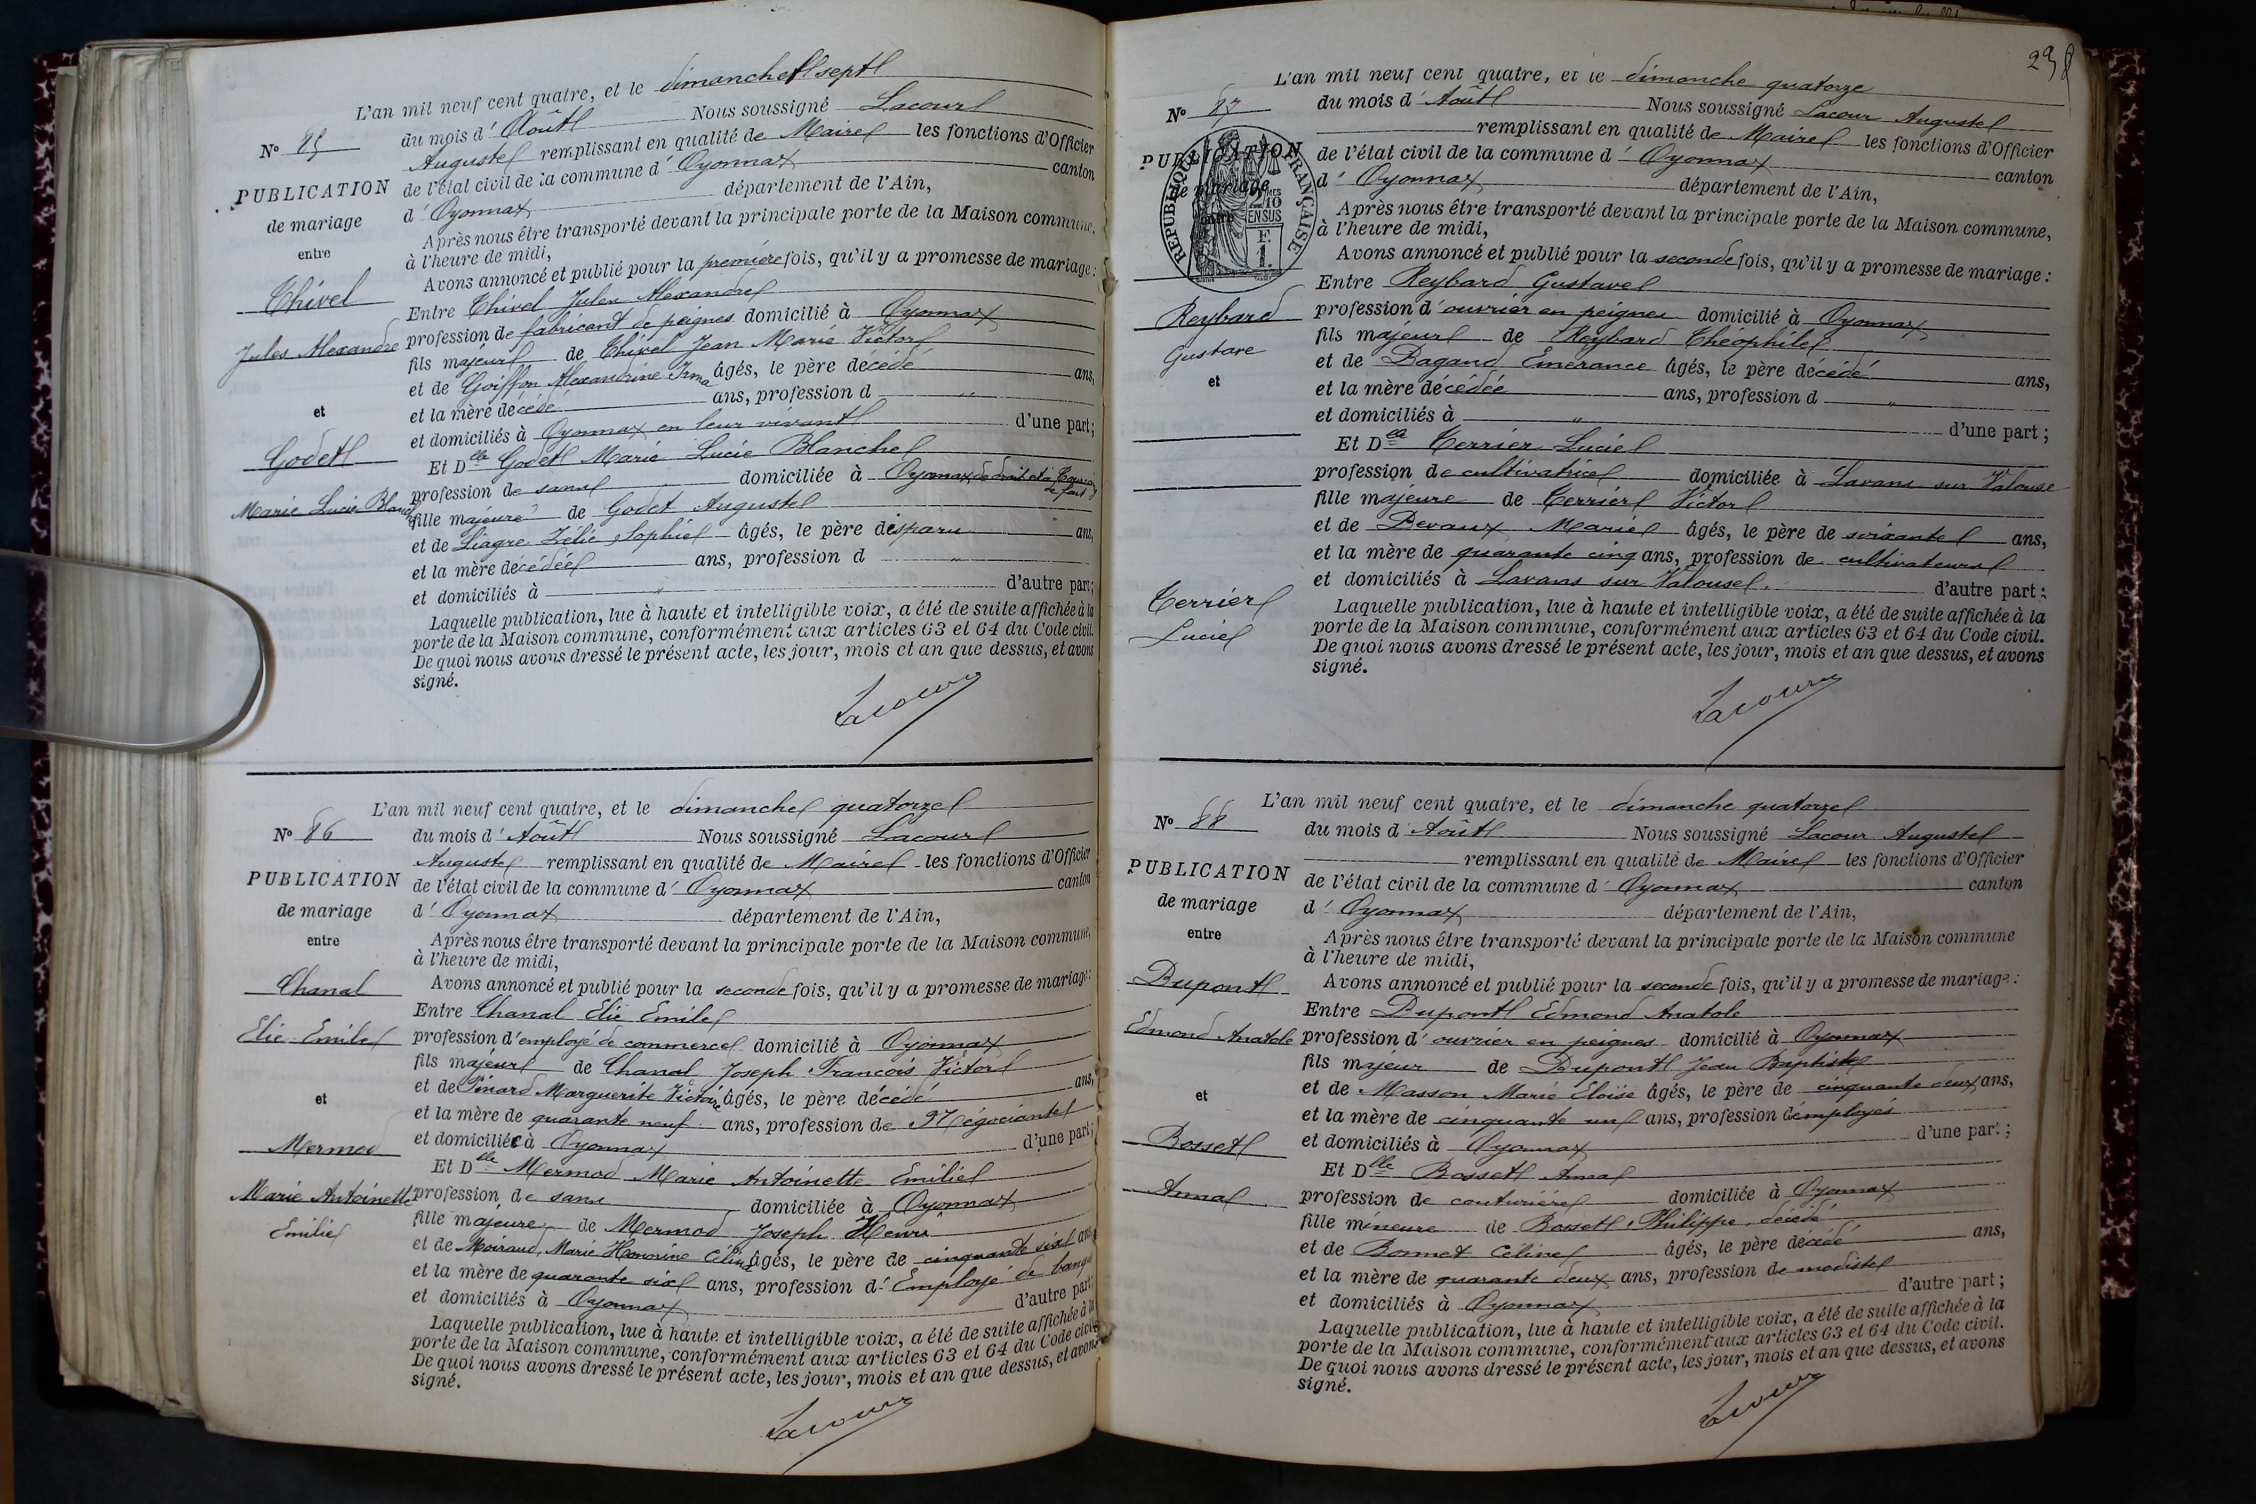 L'an mil neuf cent quatre, et le dimanche sept
N° 85 du mois d'Août Nous soussigné Lacour
Auguste remplissant en qualité de Maire les fonctions d'Officier
PUBLICATION de l'état civil de la commune d'Oyonnax canton
d'Oyonnax département de l'Ain,
de mariage Après nous être transporté devant la principale porte de la Maison commune,
entre à l'heure de midi,
Avons annoncé et publié pour la première fois, qu'il y a promesse de mariage:
Thivel Entre Thivel Jules Alexandre
profession de fabricant de peignes domicilié à Oyonnax
Jules Alexandre fils majeur de Thivel Jean Marie Victor
et de Goiffon Alexandrine Irma âgés, le père décédé ans,
et et la mère décédé ans, profession d "
et domiciliés à Oyonnax en leur vivant d'une part;
Godet Et Dlle Godet Marie Lucie Blanche
profession de sans domiciliée à Oyonnax de droit et à de fait
Marie Lucie Blanche fille majeure de Godet Auguste
et de Liagre Zélie Sophie âgés, le père disparu ans,
et la mère décédée ans, profession d "
et domiciliés à " d'autre part;
Laquelle publication, lue à haute et intelligible voix, a été de suite affichée à la
porte de la Maison commune, conformément aux articles 63 et 64 du Code civil.
De quoi nous avons dressé le présent acte, les jour, mois et an que dessus, et avons
signé.
Lacour
L'an mil neuf cent quatre, et le dimanche quatorze
N° 86 du mois d'Août Nous soussigné Lacour
Auguste remplissant en qualité de Maire les fonctions d'Officier
PUBLICATION de l'état civil de la commune d'Oyonnax canton
de mariage d'Oyonnax département de l'Ain,
entre Après nous être transporté devant la principale porte de la Maison commune,
à l'heure de midi,
Chanal Avons annoncé et publié pour la seconde fois, qu'il y a promesse de mariage:
Entre Chanal Elie Emile
Elie Emile profession d'employé de commerce domicilié à Oyonnax
fils majeur de Chanal Joseph François Victor
et de Pinard Marguerite Victoire âgés, le père décédé ans,
et et la mère de quarante neuf ans, profession de Négociante
et domiciliée à Oyonnax d'une part;
Mermod Et Dlle Mermod Marie Antoinette Emilie
Marie Antoinette profession de sans domiciliée à Oyonnax
Emilie fille majeure de Mermod Joseph Henri
et de Moiraud Marie Honorine Céline âgés, le père de cinquante six ans
et la mère de quarante six ans, profession d'Employé de banque
et domiciliés à Oyonnax d'autre part;
Laquelle publication, lue à haute et intelligible voix, a été de suite affichée à la
porte de la Maison commune, conformément aux articles 63 et 64 du Code civil.
De quoi nous avons dressé le présent acte, les jour, mois et an que dessus, et avons
signé.
Lacour
238
L'an mil neuf cent quatre, et le dimanche quatorze
N° 87 du mois d'Août Nous soussigné Lacour Auguste
remplissant en qualité de Maire les fonctions d'Officier
PUBLICATION de l'état civil de la commune d'Oyonnax canton
de mariage d'Oyonnax département de l'Ain,
RÉPUBLIQUE FRANÇAISE
2/10 EN SUS
F. 1.
entre Après nous être transporté devant la principale porte de la Maison commune,
à l'heure de midi,
Avons annoncé et publié pour la seconde fois, qu'il y a promesse de mariage:
Entre Reybard Gustave
Reybard profession d'ouvrier en peignes domicilié à Oyonnax
Gustave fils majeur de Reybard Théophile
et de Dagand Emerance âgés, le père décédé ans,
et et la mère décédée ans, profession d "
et domiciliés à " d'une part;
Et Dlle Terrier Lucie
profession de cultivatrice domiciliée à Lavans sur Valouse
fille majeure de Terrier Victor
et de Devaux Marie âgés, le père de soixante ans,
et la mère de quarante cinq ans, profession de cultivateurs
Terrier et domiciliés à Lavans sur Valouse d'autre part;
Lucie Laquelle publication, lue à haute et intelligible voix, a été de suite affichée à la
porte de la Maison commune, conformément aux articles 63 et 64 du Code civil.
De quoi nous avons dressé le présent acte, les jour, mois et an que dessus, et avons
signé.
Lacour
L'an mil neuf cent quatre, et le dimanche quatorze
N° 88 du mois d'Août Nous soussigné Lacour Auguste
remplissant en qualité de Maire les fonctions d'Officier
PUBLICATION de l'état civil de la commune d'Oyonnax canton
de mariage d'Oyonnax département de l'Ain,
entre Après nous être transporté devant la principale porte de la Maison commune
à l'heure de midi,
Dupont Avons annoncé et publié pour la seconde fois, qu'il y a promesse de mariage:
Entre Dupont Edmond Anatole
Edmond Anatole profession d'ouvrier en peignes domicilié à Oyonnax
fils majeur de Dupont Jean Baptiste
et et de Masson Marie Eloïse âgés, le père de cinquante deux ans,
et la mère de cinquante un ans, profession d'employés
Bosset et domiciliés à Oyonnax d'une part;
Et Dlle Bosset Anna
Anna profession de couturière domiciliée à Oyonnax
fille mineure de Bosset Philippe, décédé
et de Bonnet Céline âgés, le père décédé ans,
et la mère de quarante deux ans, profession de modiste
et domiciliés à Oyonnax d'autre part;
Laquelle publication, lue à haute et intelligible voix, a été de suite affichée à la
porte de la Maison commune, conformément aux articles 63 et 64 du Code civil.
De quoi nous avons dressé le présent acte, les jour, mois et an que dessus, et avons
signé.
Lacour